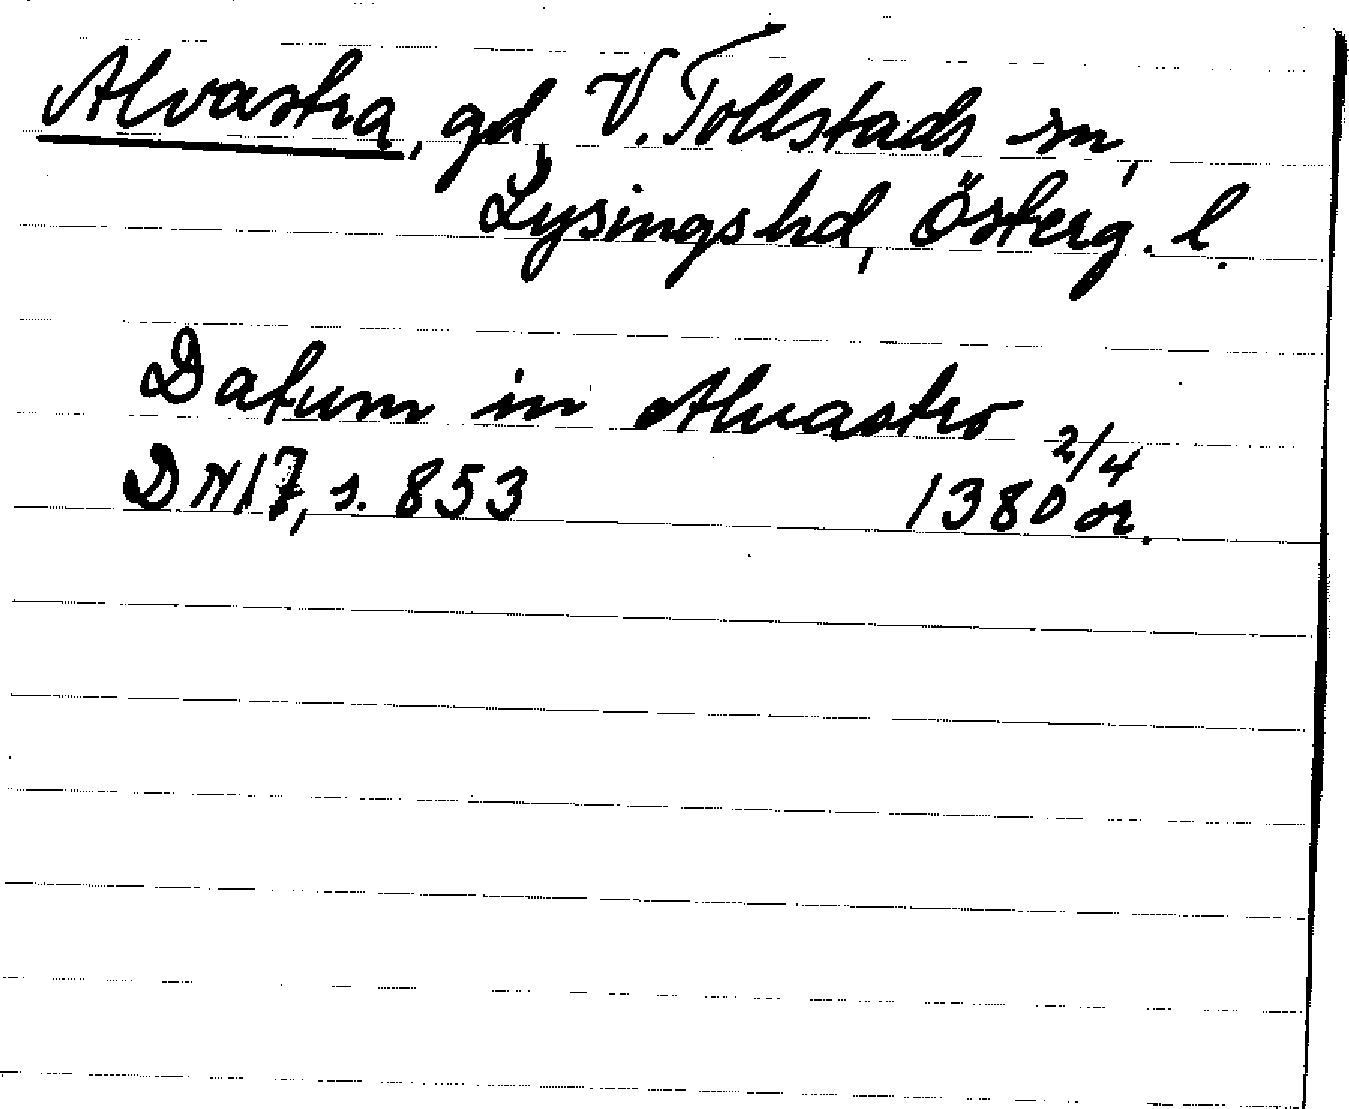 Alvastra, gd, V. Tollstads sn,
Lysings hd, Österg. l.
Datum in Alvastro 2/4
DN 17, s. 853 1380 or.